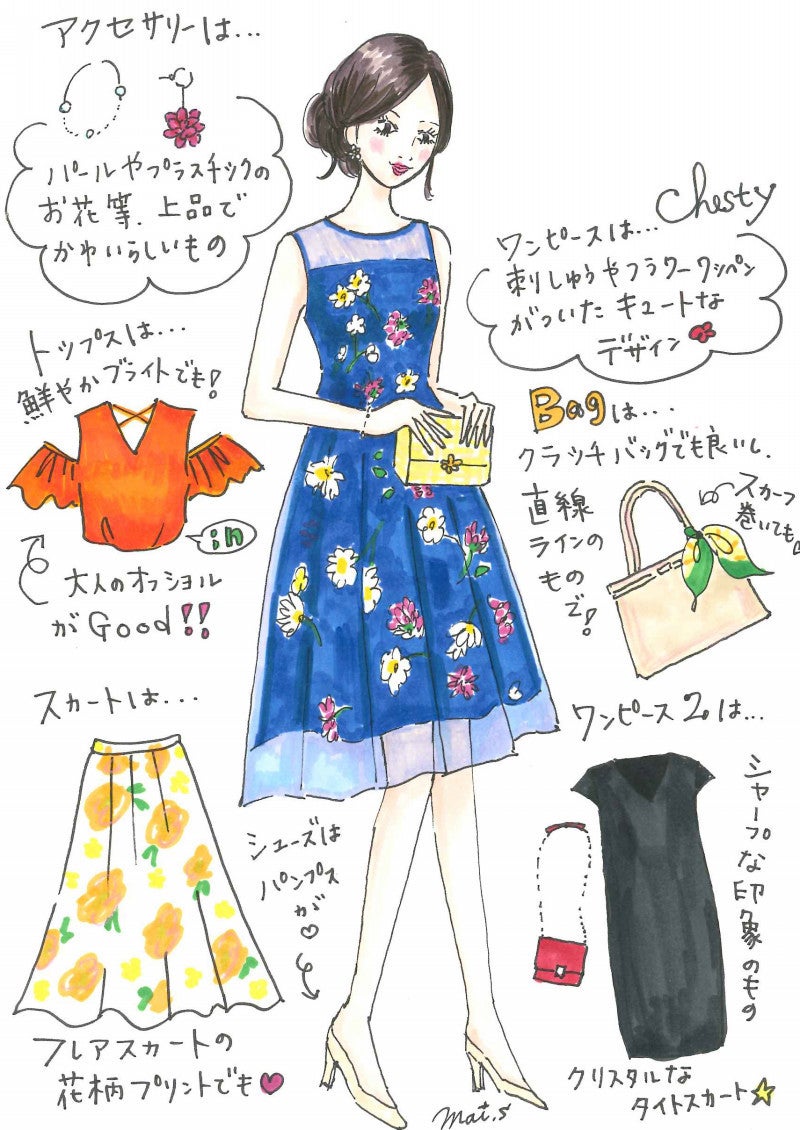 アクセサリーは...
パールやプラスチックの
お花等、上品で
かわいらしいもの
Chesty
ワンピースは...
刺しゅうやフラワーワッペン
がついた キュートな
デザイン
トップスは...
鮮やかブライトでも!
in
大人のオフショル
がGood!!
Bagは....
クラッチバッグでも良いし、
直線
ラインの
もので!
スカーフ
巻いても
スカートは...
フレアスカートの
花柄プリントでも♥
シューズは
パンプス
が♡
ワンピース2は...
シャープな印象のもの
クリスタルな
タイトスカート★
mai.s